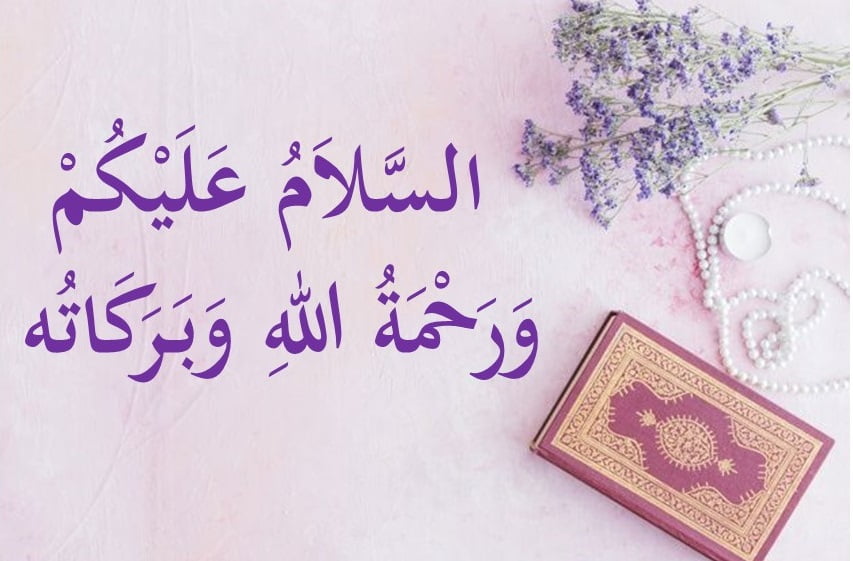 السَّلاَمُ عَلَيْكُمْ
وَرَحْمَةُ اللهِ وَبَرَكَاتُه